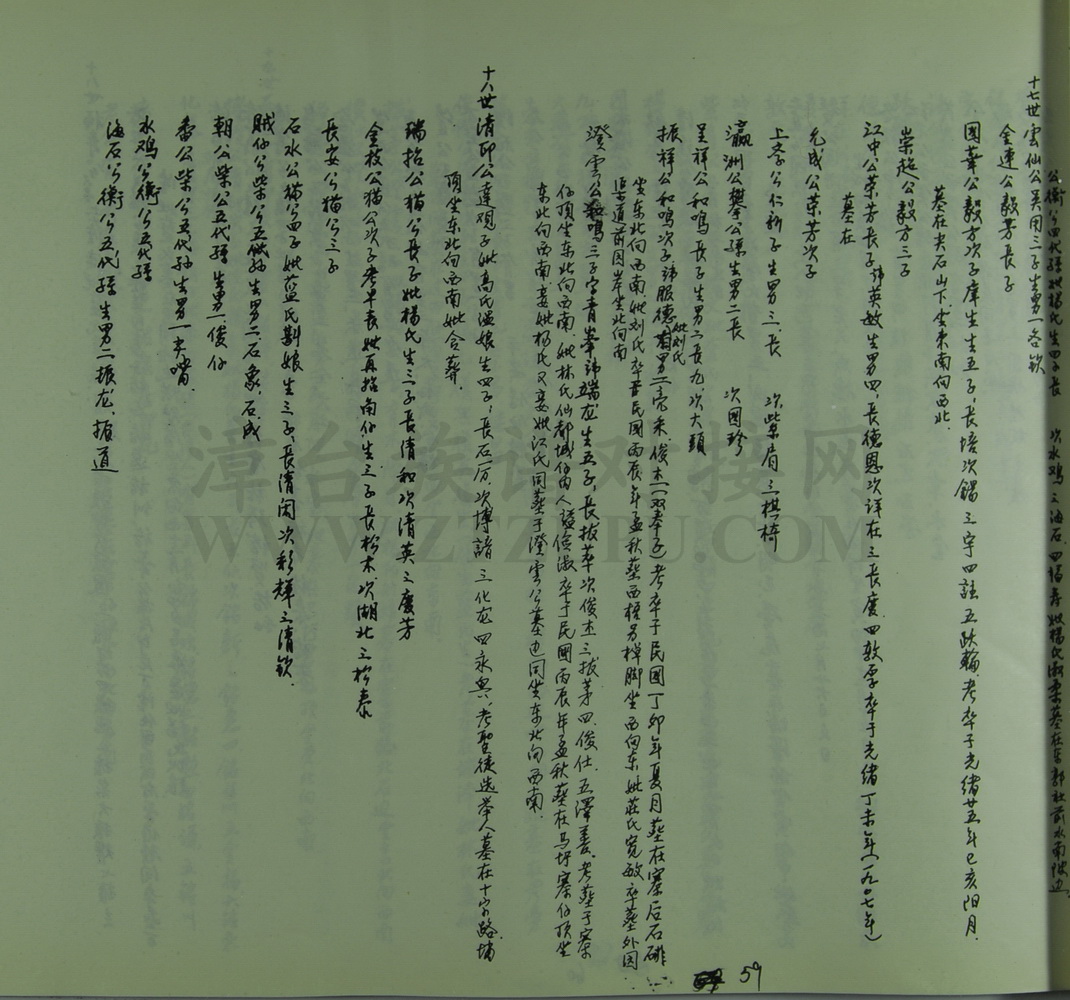 公衡公四代孫妣楊氏生四子長 次水鸡三海石四
十七世雲仙公吴用三子生男一名欽
金連公毅芳長子
國華公毅方次子庠生生五子長培次錫三宇四
五跃輪考卒于光緒廿五年已亥阳月
墓在尖石山下坐東南向西北
崇超公毅方三子
江中公荣芳長子諱英敏生男四長德恩次詳在三長度四敦厚卒于光緒丁未年(一九0七年)
墓在
允成公荣芳次子
上泰公仁新子生男三長 次紫眉三棋椅
瀛洲公攀公孫生男二長 次國珍
呈祥公和鳴長子生男二長九次大頭
振祥公和鳴次子諱服德妣刘氏男二毫来俊木(双奉子)考卒于民國丁卯年夏月葬在寨后石碑
坐东北向西南妣刘氏卒民國丙辰年孟秋葬西
坐西向东妣莊氏寬敏卒葬外园
古道前园岸坐北向南
澄雲公鳴三子字青峯諱端龙生五子長拔萃次俊杰三拔茅四俊仕五澤善考葬于寨
仔頂坐东北向西南妣林氏仙都城仔内人諡儉淑卒于民國丙辰年孟秋葬在马坪寨仔顶坐
东北向西南妾妣楊氏又妾妣江氏同葬于澄雲公墓边同坐东北向西南
十八世清郎公達观子妣高氏温娘生四子長石历次博諳三化龙四永興考聖徒选举人墓在十字路埔
頂坐东北向西南妣合葬
瑞招公猫公長子妣楊氏生三子長清和次清英三慶芳
金枝公猫公次子考早喪妣再招南仔生三子長松木次湖北三松泰
長安公猫公三子
石水公猫公四子妣藍氏斟娘生三子長清闲次彩輝三清欽
賊仔公柴公五代孫生男二石象石成
朝公柴公五代孫生男一俊仔
番公柴公五代孙生男一尖嘴
水鸡公衡公五代孫
海石公衡公五代孫生男二振龙振道
59
漳台族谱对接网
WWW.ZTZUPU.COM